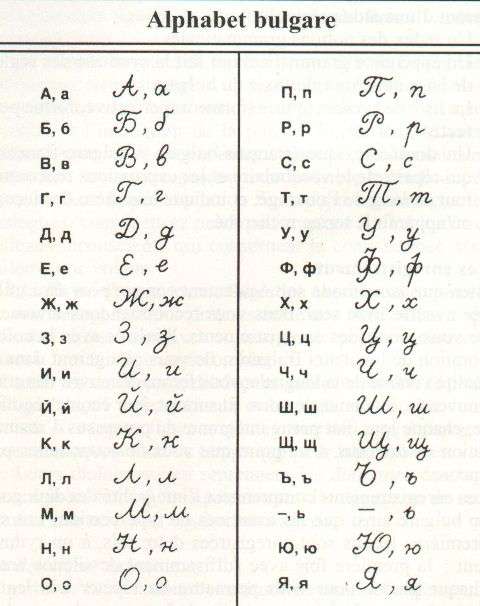 Alphabet bulgare
А, а А, а
Б, б Б, б
В, в В, в
Г, г Г, г
Д, д Д, д
Е, е Е, е
Ж, ж Ж, ж
З, з З, з
И, и И, и
Й, й И, й
К, к К, к
Л, л Л, л
М, м М, м
Н, н Н, н
О, о О, о
П, п П, п
Р, р Р, р
С, с С, с
Т, т Т, т
У, у У, у
Ф, ф Ф, ф
Х, х Х, х
Ц, ц Ц, ц
Ч, ч Ч, ч
Ш, ш Ш, ш
Щ, щ Щ, щ
Ъ, ъ Ъ, ъ
–, ь –, ь
Ю, ю Ю, ю
Я, я Я, я